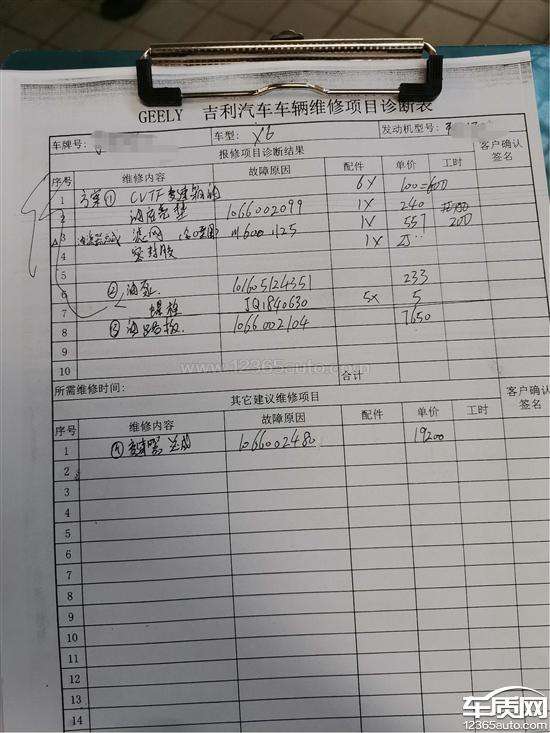 GEELY 吉利汽车车辆维修项目诊断表
车牌号: 车型: X6 发动机型号:
报修项目诊断结果 客户确认签名
序号 维修内容 故障原因 配件 单价 工时
1 方案① CVTF 变速箱油 6X 100=600
2 1066002099 1X 240
3 滤网 1X 557 200
4 密封胶 1X
5
6 ②油泵 233
7 螺栓 JQ1840630 5X 5
8 ③油路板 1066002104 7650
9
10 合计
www.12365auto.com
所需维修时间: 其它建议维修项目 客户确认签名
序号 维修内容 故障原因 配件 单价 工时
1 ④变速器总成 1066002480 19200
2
3
4
5
6
7
8
9
10
11
12
13
14
车质网
12365auto.com